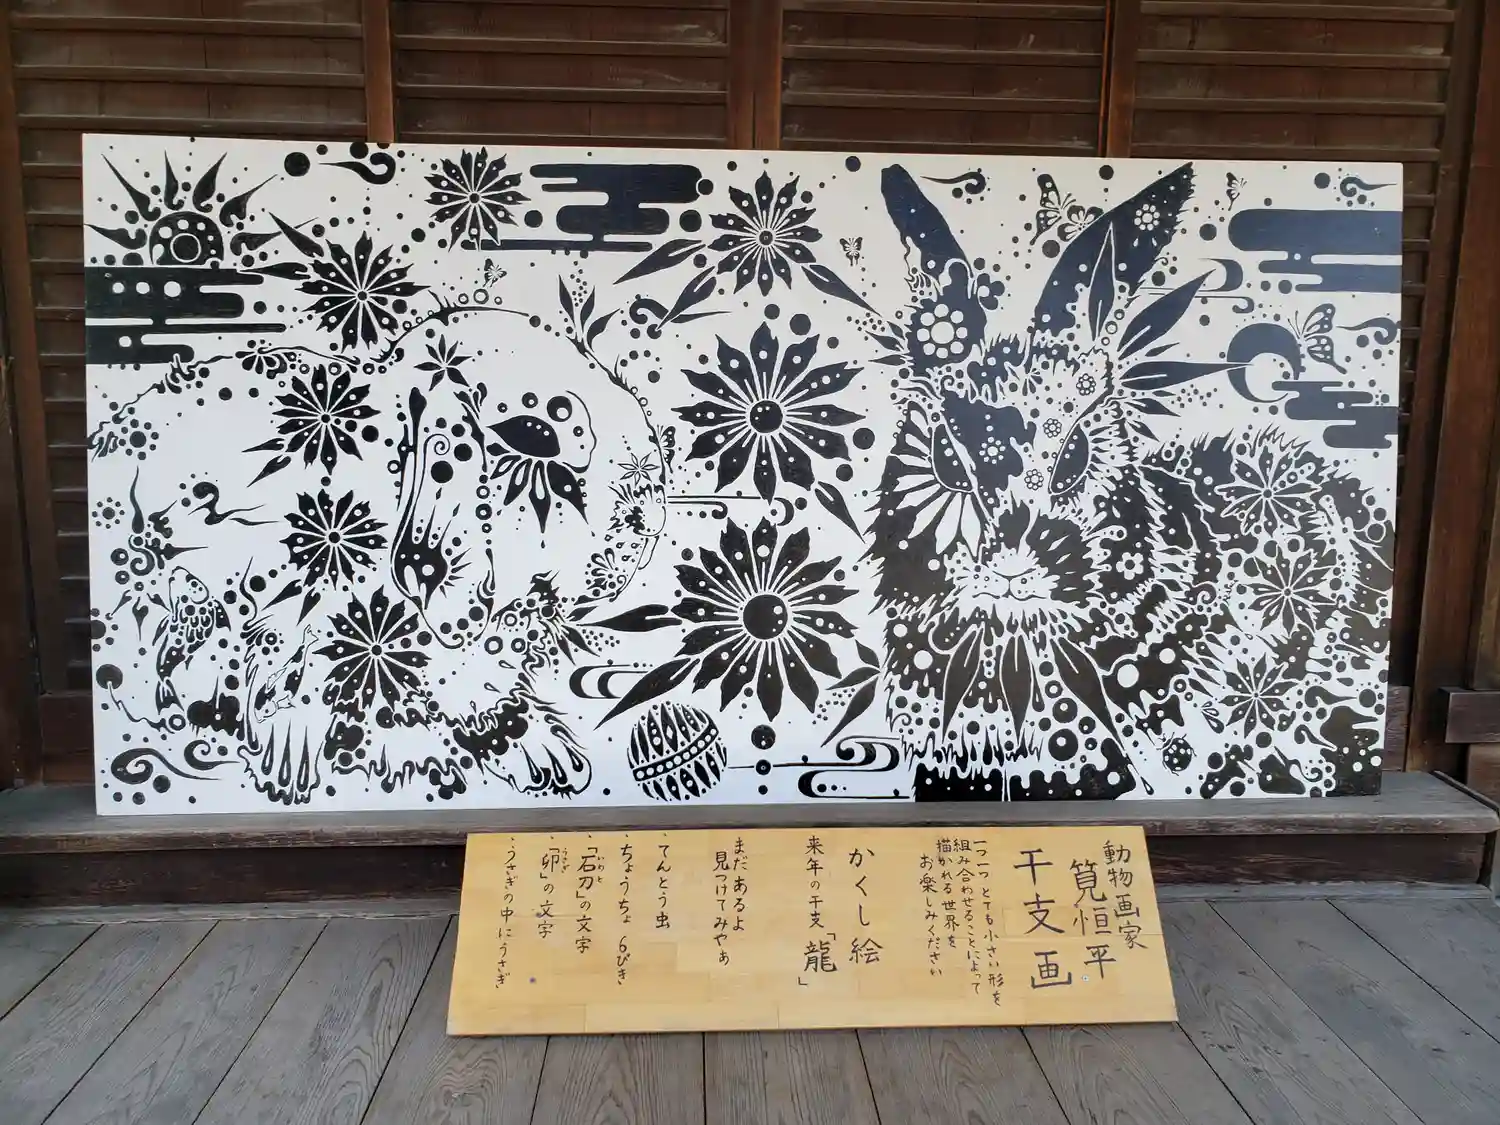 動物画家
筧恒平
干支画
一つ一つとても小さい形を
組み合わせることによって
描かれる世界を
お楽しみください
かくし絵
来年の干支「龍」
まだあるよ
見つけてみやぁ
・てんとう虫
・ちょうちょ 6ぴき
・「石刀」の文字
いわと
・「卯」の文字
うさぎ
・うさぎの中にうさぎ